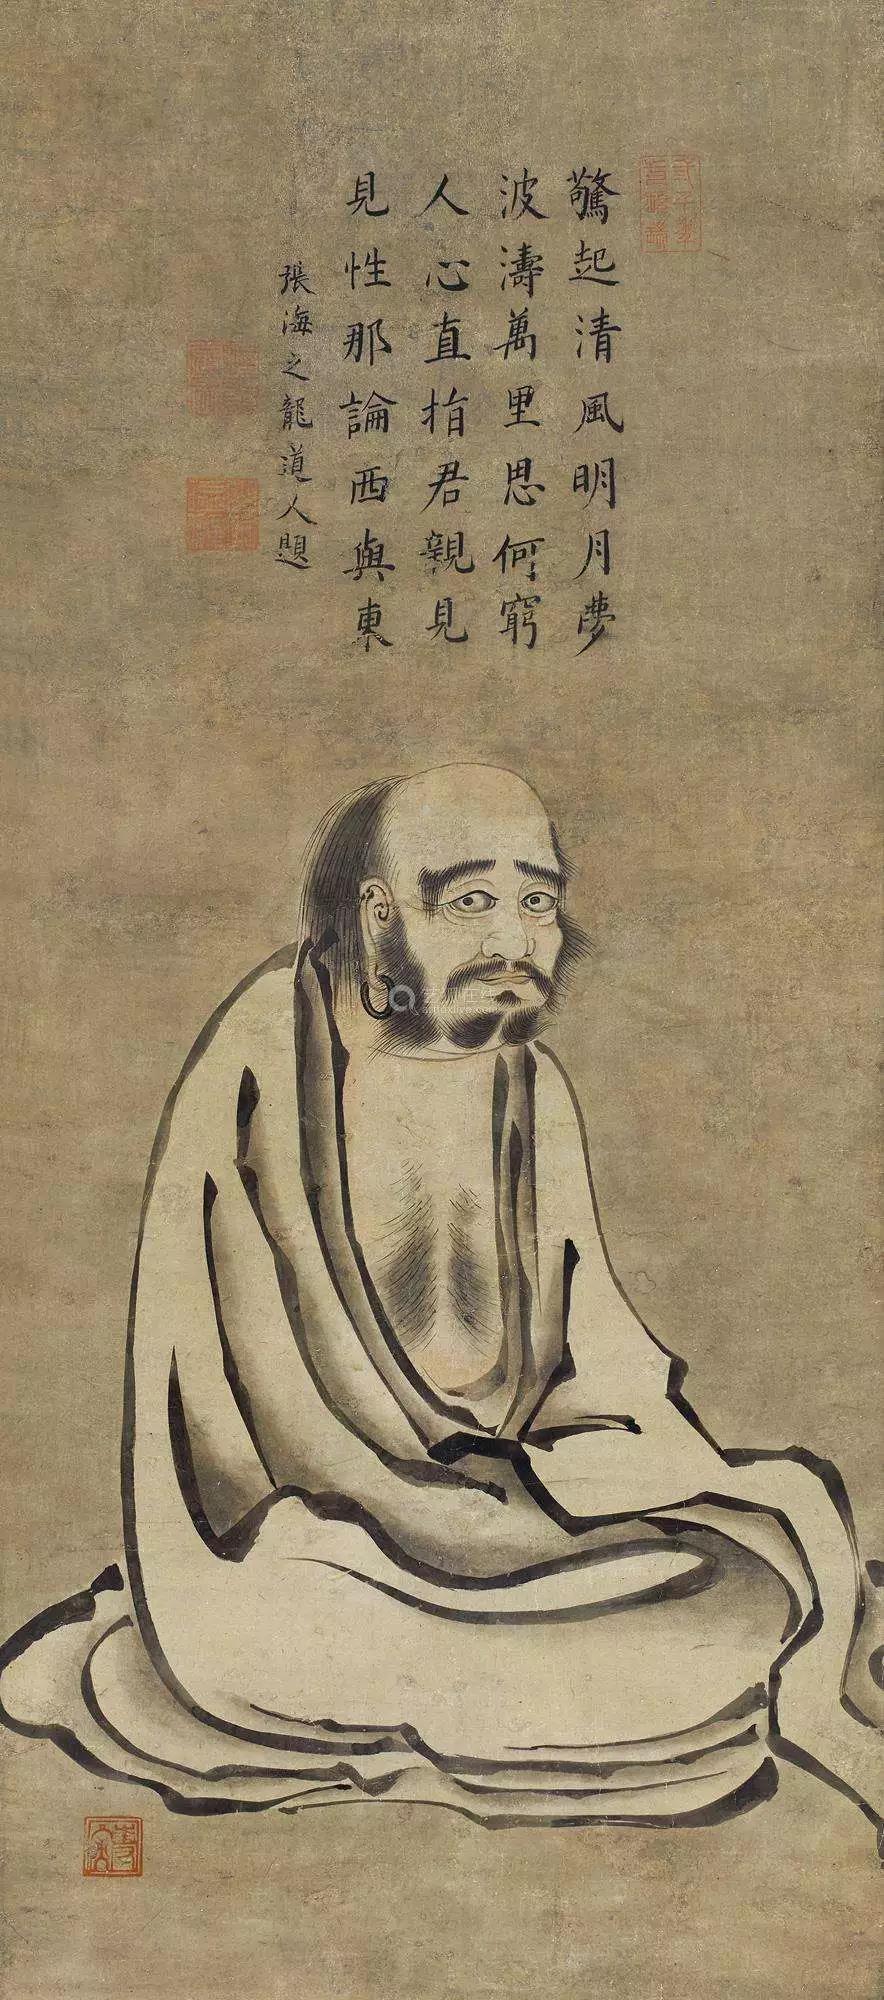 驚起清風明月夢
波濤萬里思何窮
人心直指君親見
見性那論西與東
張海之龍道人題